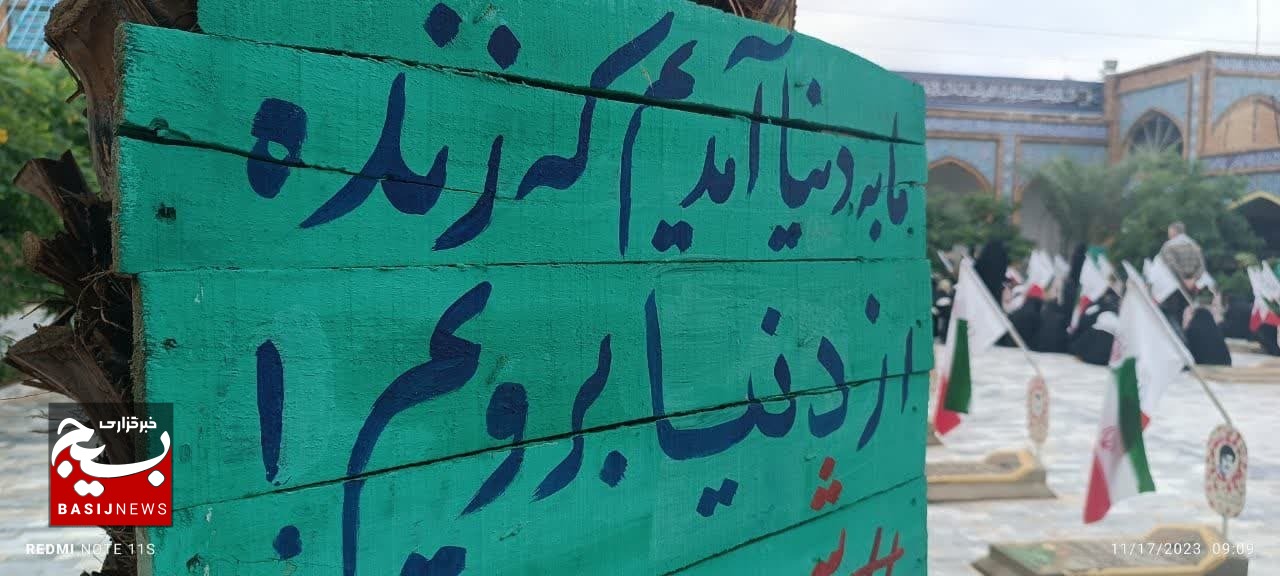 ما به دنیا آمدیم که زنده
از دنیا برویم!
#ش
خبرگزاری
بسیج
BASIJNEWS
REDMI NOTE 11S
11/17/2023 09:09